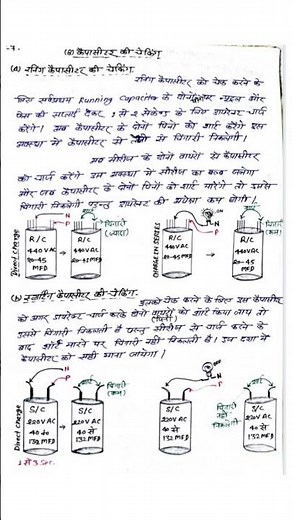 -7-
(8) कैपासीटर की चेकिंग
(a) रनिंग कैपासीटर की चेकिंग
रनिंग कैपासीटर को चेक करने के
लिए सर्वप्रथम Running Capacitor के दोनों न्यूट्रल और
फेस की सप्लाई देकर 1 से 2 सेकेण्ड के लिए डायरेक्ट चार्ज
करेंगे। अब कैपासीटर के दोनों पिनों को शार्ट करेंगे इस
अवस्था में कैपासीटर से चिंगारी निकलेगी।
अब सीरीज के दोनों वायरों से कैपासीटर
को चार्ज करेंगे इस अवस्था में सीरीज का बल्ब जलेगा
और जब कैपासीटर के दोनों पिनों को शार्ट करेंगे तो उसमें
चिंगारी निकलेगी परन्तु डायरेक्ट की अपेक्षा कम होगी।
Direct Charge
N
P
R/C
440VAC
20-45
MFD
शार्ट
चिंगारी
(ज्यादा)
R/C
440VAC
20-45MFD
CHARGE IN SERIES
N
P
R/C
440VAC
20-45
MFD
शार्ट
चिंगारी
(कम)
R/C
440VAC
20-45
MFD
(b) स्टार्टिंग कैपासीटर की चेकिंग:
इसको चेक करने के लिए इस कैपासीटर
को अगर डायरेक्ट चार्ज करके दोनों वायरों को शार्ट किया जाय तो
(पिनों)
उससे चिंगारी निकलती है परन्तु सीरीज से चार्ज करने के
बाद शॉर्ट मारने पर चिंगारी नहीं निकलती है। इस दशा में
कैपासीटर को सही माना जायेगा।
Direct Charge
N
P
S/C
220V AC
40 से
132 MFD
1 से 3 Sec.
शार्ट
चिंगारी
(कम)
S/C
220V AC
40 से
132 MFD
N
P
S/C
220V AC
40 से
132 MFD
शार्ट
चिंगारी
नहीं
निकलती
S/C
220V AC
40 से
132 MFD